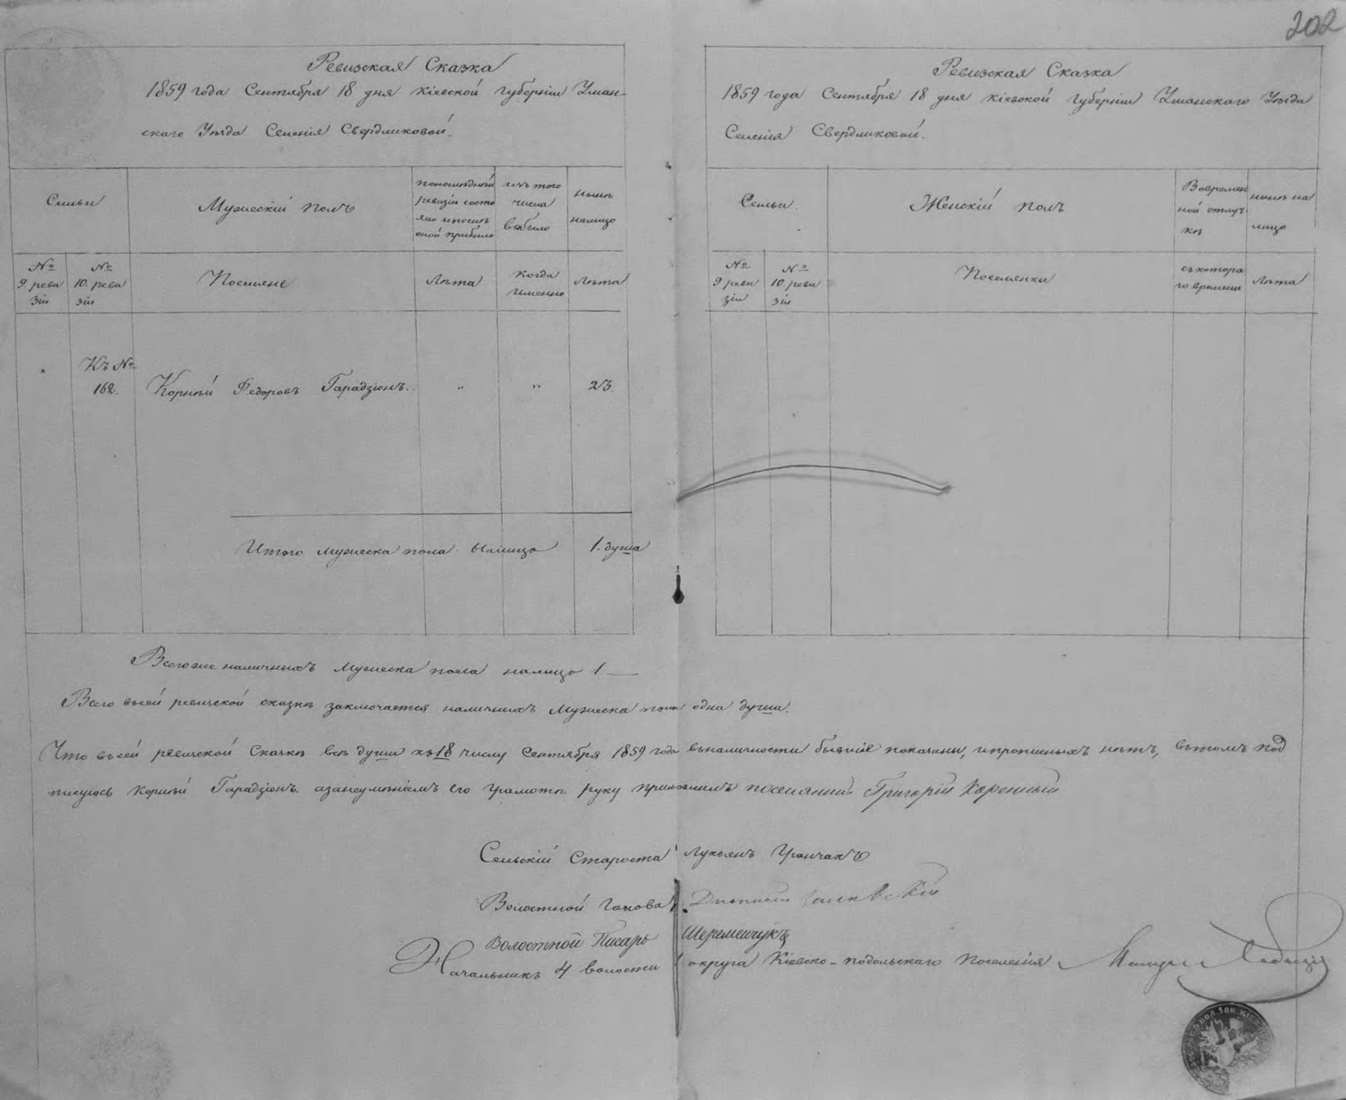 202
Ревизская Сказка
1859 года Сентября 18 дня Кіевской Губерніи Уман-
скаго Уѣзда Селенія Свердликовой.
Семьи
Мужескій полъ
по последней
ревизіи состо
яло и после
оной прибыло
изъ того
числа
выбыло
нынѣ
налицо
№
9 реви
зіи
№
10 реви
зіи
Поселяне
Лѣта
Когда
именно
Лѣта
"
Къ №
162.
Корнѣй Федоровъ Гарадзіонъ.
"
"
23.
Итого мужеска пола налицо 1. душа
Ревизская Сказка
1859 года Сентября 18 дня Кіевской Губерніи Уманскаго Уѣзда
Селенія Свердликовой.
Семьи.
Женскій полъ
Вовремен
ной отлуч-
кѣ
нынѣ на
лицо
№
9 реви
зіи
№
10 реви
зіи
Поселянки
съ котора
го времени
Лѣта
Всего же наличныхъ Мужеска пола налицо 1 —
Всего в сей ревизской сказкѣ заключается наличныхъ Мужеска пола одна душа.
Что в сей ревизской Сказкѣ всѣ души къ 18 числу Сентября 1859 года въ наличности бывшіе показаны, и прописныхъ нѣтъ, въ томъ под
писуюсь Корнѣй Гарадзіонъ а за неумѣніемъ его грамотѣ руку приложилъ поселянинъ Григорій Коренный
Сельскій Староста Лукьянъ Грончакъ
Волостной Голова
Волостной Писарь Шереметчукъ
Начальникъ 4 волости округа Кіевско-Подольскаго Поселенія